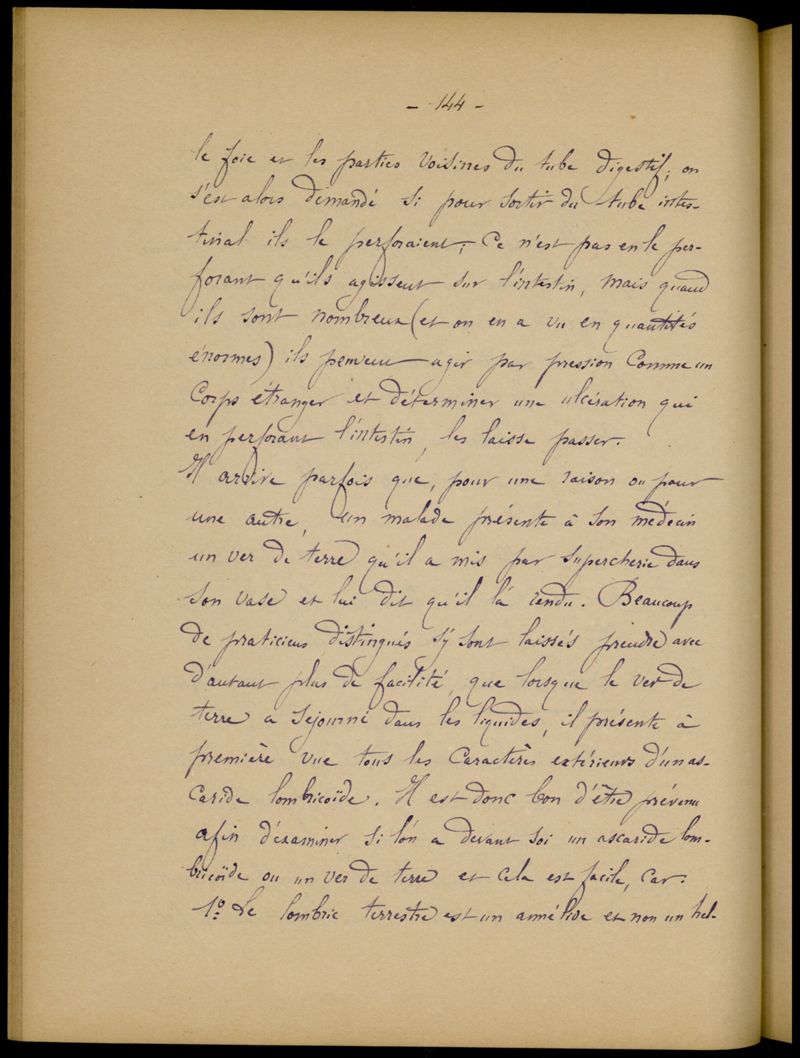 - 144 -
le foie et les parties voisines du tube digestif; on
s'est alors demandé si pour sortir du tube intes-
tinal ils le perforaient; Ce n'est pas en le per-
forant qu'ils agissent sur l'intestin, mais quand
ils sont nombreux (et on en a vu en quantités
énormes) ils peuvent agir par pression comme un
Corps étranger et déterminer une ulcération qui
en perforant l'intestin, les laisse passer.
Il arrive parfois que, pour une raison ou pour
une autre, un malade présente à son médecin
un ver de terre qu'il a mis par supercherie dans
son vase et lui dit qu'il l'a rendu. Beaucoup
de praticiens distingués s'y sont laissés prendre avec
d'autant plus de facilité, que lorsque le ver de
terre a séjourné dans les liquides, il présente à
première vue tous les caractères extérieurs d'un as-
caride lombricoïde. Il est donc bon d'être prévenu
afin d'éxaminer si l'on a devant soi un ascaride lom-
bricoïde ou un ver de terre et cela est facile, Car:
1º Le lombric terrestre est un annélide et non un hel-